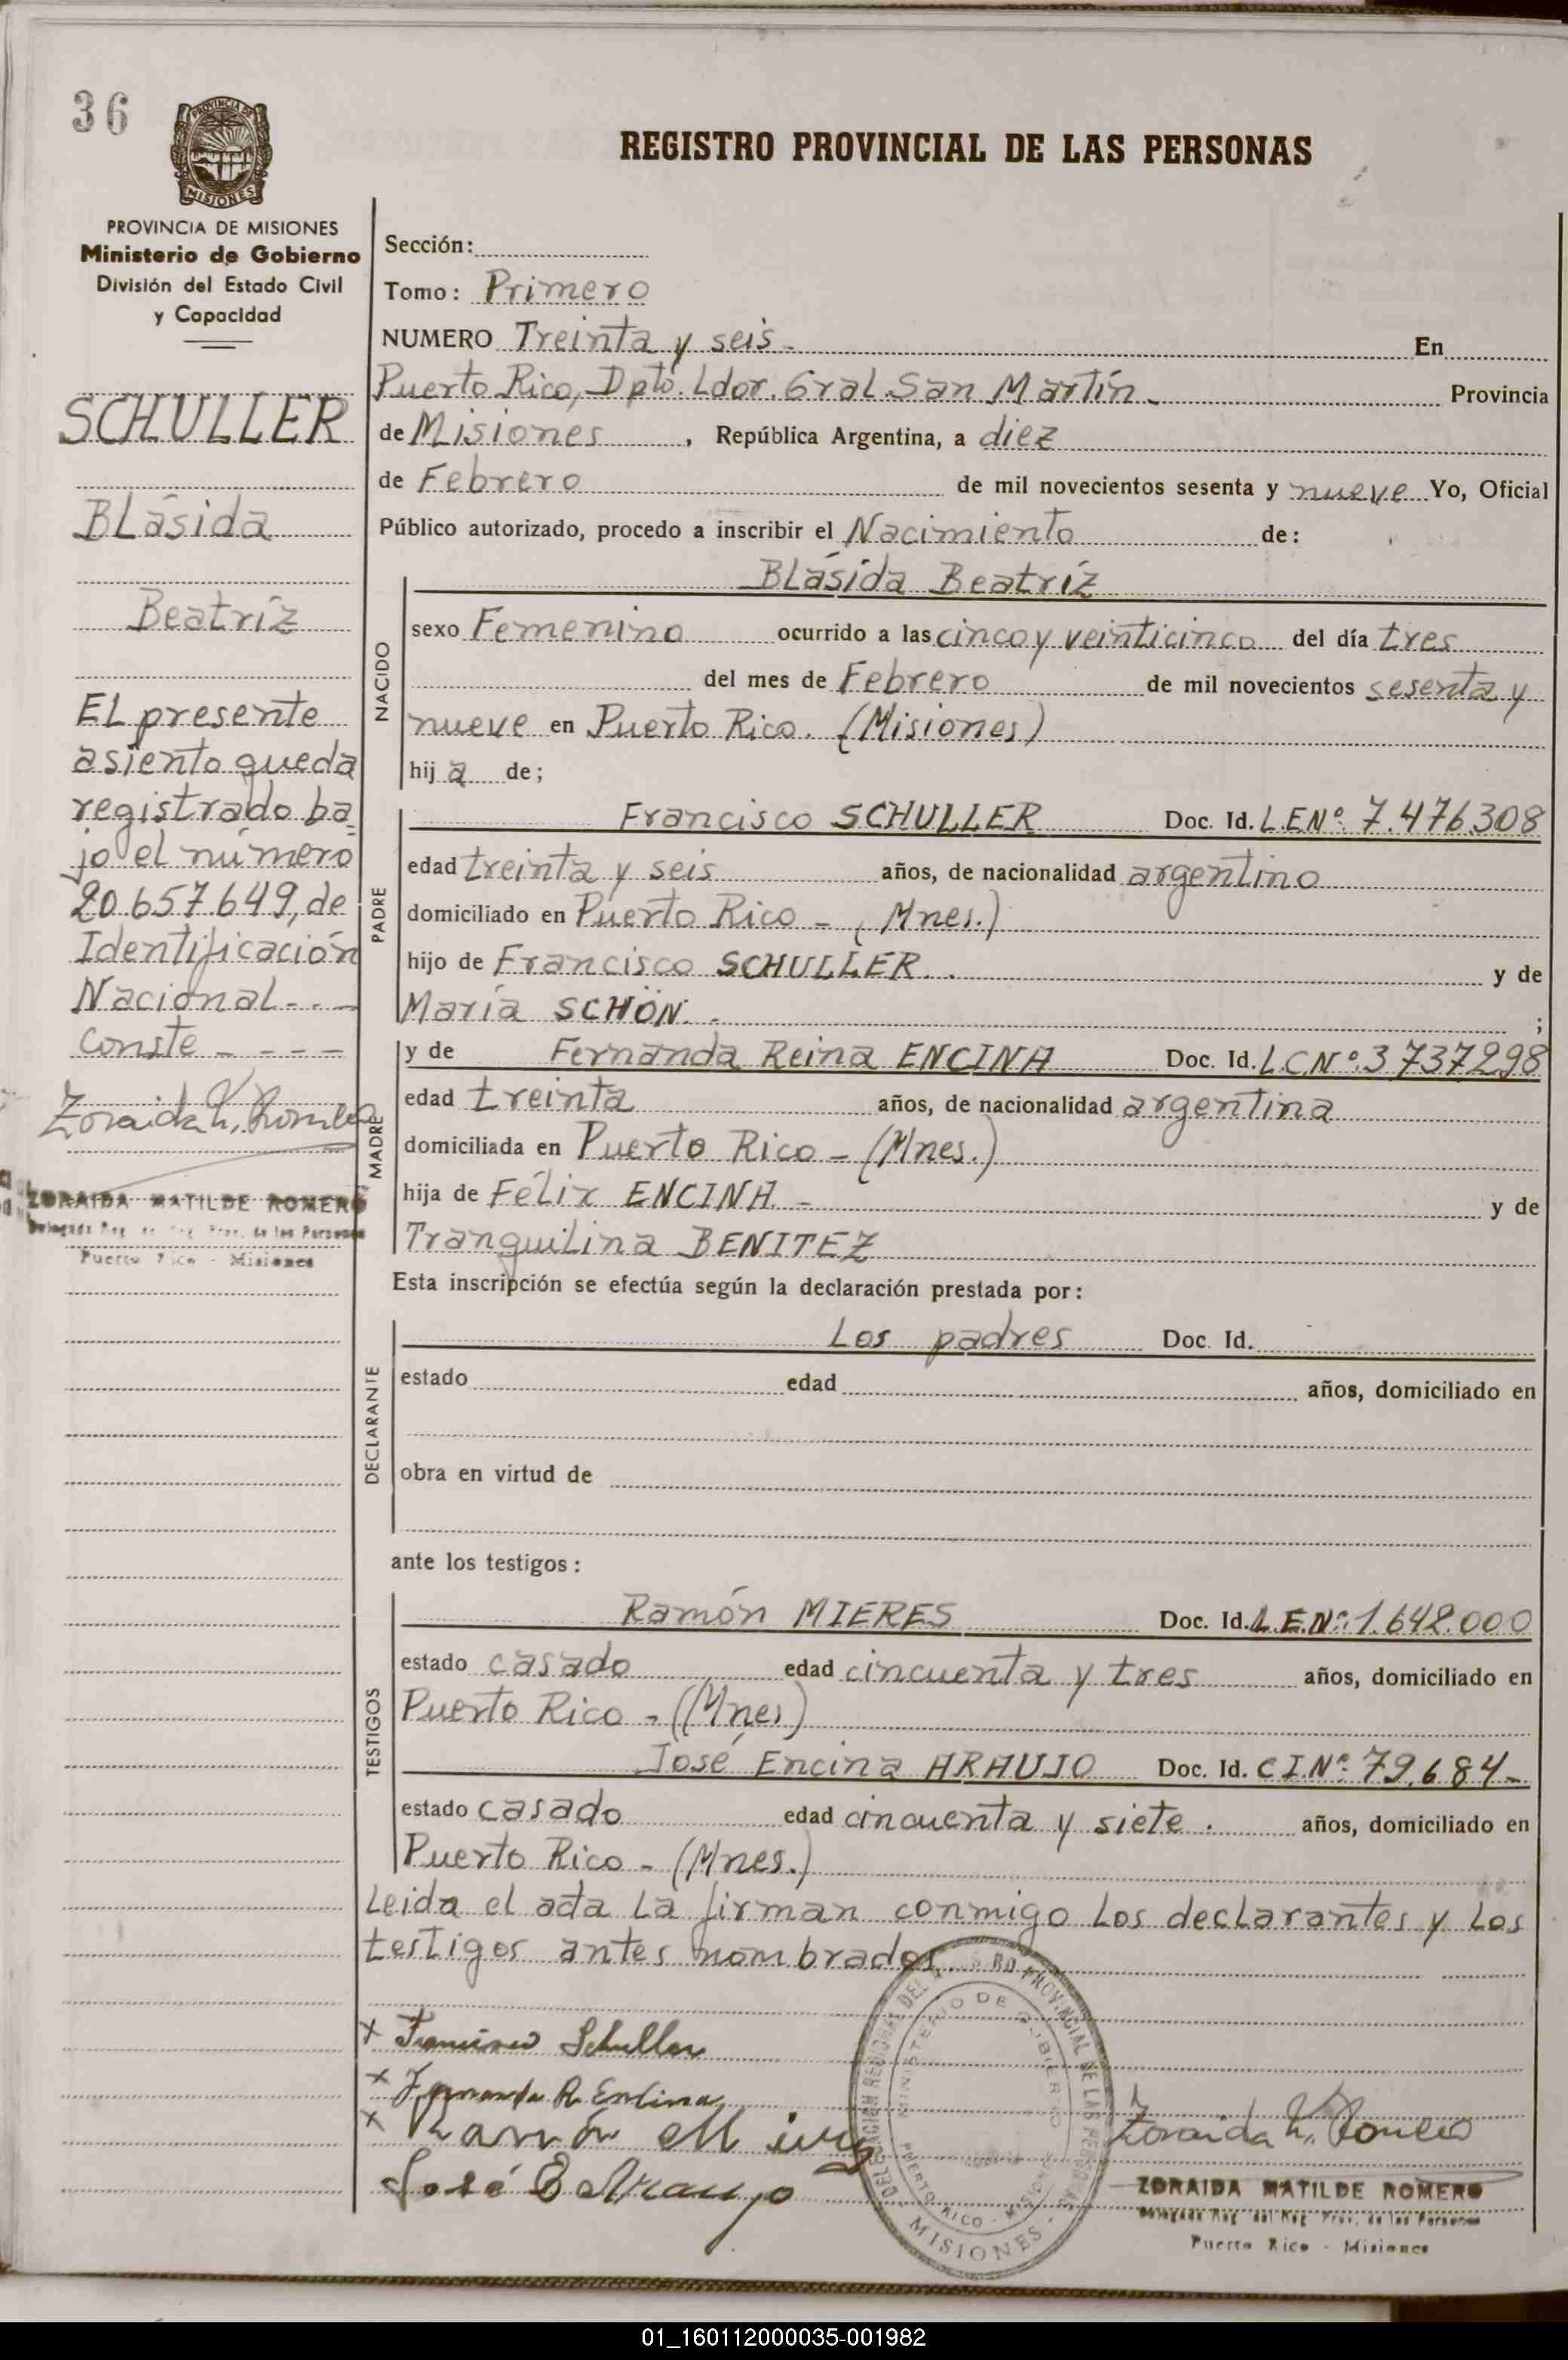 36
PROVINCIA DE
MISIONES
REGISTRO PROVINCIAL DE LAS PERSONAS
PROVINCIA DE MISIONES
Ministerio de Gobierno
División del Estado Civil
y Capacidad
SCHULLER
Blásida
Beatríz
El presente
asiento queda
registrado ba
jo el número
20.657.649, de
Identificación
Nacional - . -
Conste - - - -
Zoraida M. Romero
ZORAIDA MATILDE ROMERO
Delegada Reg. del Reg. Prov. de las Personas
Puerto Rico - Misiones
Sección:
Tomo: Primero
NUMERO Treinta y seis - En
Puerto Rico, Dpto. Ldor. Gral. San Martín - Provincia
de Misiones, República Argentina, a diez
de Febrero de mil novecientos sesenta y nueve Yo, Oficial
Público autorizado, procedo a inscribir el Nacimiento de:
NACIDO
Blásida Beatríz
sexo Femenino ocurrido a las cinco y veinticinco del día tres
del mes de Febrero de mil novecientos sesenta y
nueve en Puerto Rico. (Misiones)
hij a de;
PADRE
Francisco SCHULLER Doc. Id. L.E.Nº. 7.476.308
edad treinta y seis años, de nacionalidad argentino
domiciliado en Puerto Rico - (Mnes.)
hijo de Francisco SCHULLER. . y de
María SCHÖN. - ;
MADRE
y de Fernanda Reina ENCINA Doc. Id. L.C.Nº. 3.737.298
edad treinta años, de nacionalidad argentina
domiciliada en Puerto Rico - (Mnes.)
hija de Félix ENCINA. - y de
Tranquilina BENITEZ
Esta inscripción se efectúa según la declaración prestada por:
DECLARANTE
Los padres Doc. Id.
estado edad años, domiciliado en
obra en virtud de
ante los testigos:
TESTIGOS
Ramón MIERES Doc. Id. L.E.Nº. 1.642.000
estado casado edad cincuenta y tres años, domiciliado en
Puerto Rico - (Mnes)
José Encina ARAUJO Doc. Id. C.I.Nº. 79.684-
estado casado edad cincuenta y siete . años, domiciliado en
Puerto Rico - (Mnes.)
Leida el acta la firman conmigo los declarantes y los
testigos antes nombrados.
x Francisco Schuller
x Fernanda R. Encina
x Ramón
José E Araujo
DELEGACION REGIONAL DEL REGISTRO PROVINCIAL DE LAS PERSONAS
MINISTERIO DE GOBIERNO
PUERTO RICO - MISIONES
- MISIONES -
Zoraida M. Romero
ZORAIDA MATILDE ROMERO
Delegada Reg. del Reg. Prov. de las Personas
Puerto Rico - Misiones
01_160112000035-001982